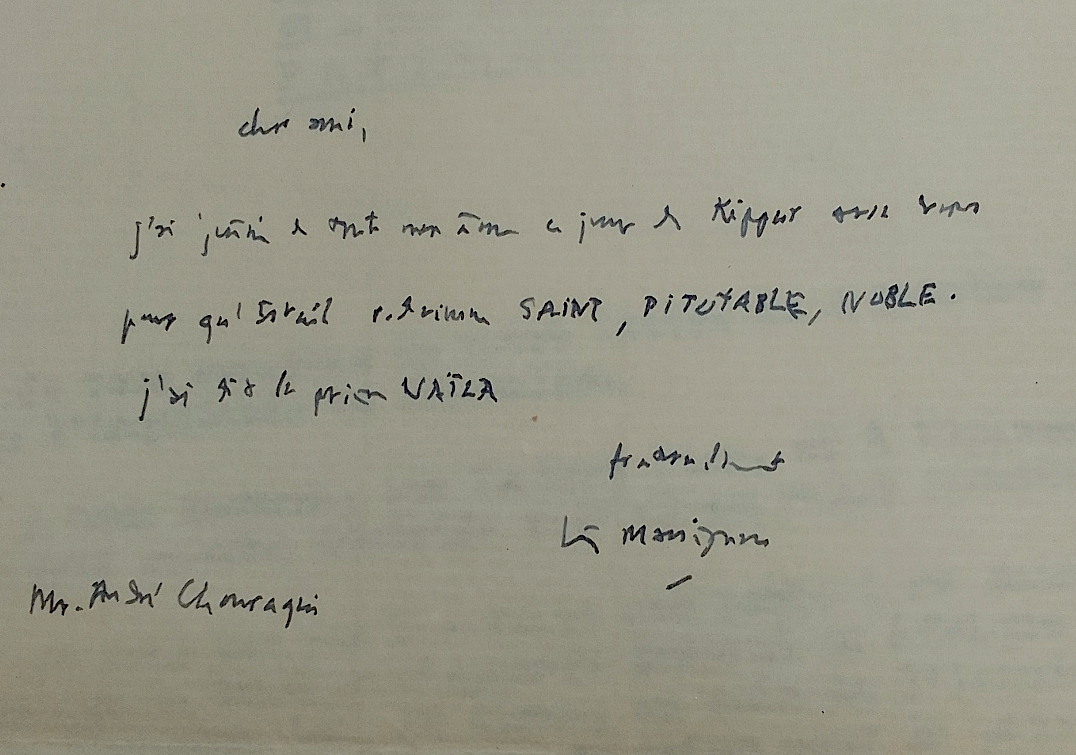 cher ami,
j'ai jeûné de toute mon âme ce jour de Kippur avec vous
pour qu'Israël redevienne SAINT, PITOYABLE, NOBLE.
j'ai dit la prière NAÏLA
fraternellement
Louis Massignon
Mr. André Chouraqui